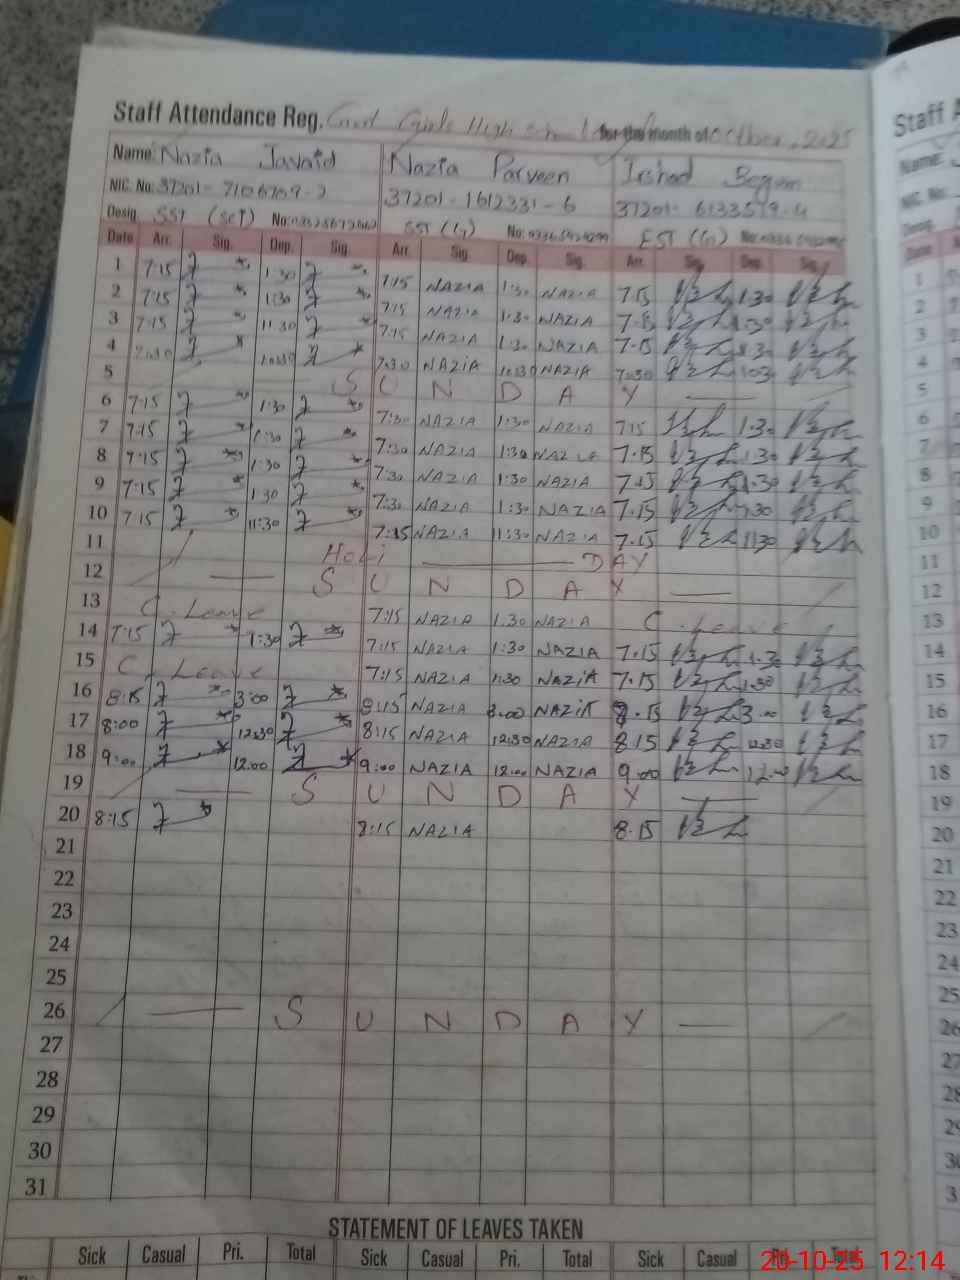 Staff Attendance Reg. Govt Girls High School for the month of October, 2025
Name: Nazia Javaid Nazia Parveen Irshad Begum
NIC. No: 37201-7106709-2 37201-1612331-6 37201-6133579-4
Desig. SST (Sci) No: SST (G) No: EST (G) No:
Date Arr. Sig. Dep. Sig. Arr. Sig. Dep. Sig. Arr. Sig. Dep. Sig.
1 7:15 1:30 7:15 NAZIA 1:30 NAZIA 7.15 1.30
2 7:15 1:30 7:15 NAZIA 1:30 NAZIA 7.15 1.30
3 7:15 11:30 7:15 NAZIA 1:30 NAZIA 7.15
4 7:30 NAZIA 10:30 NAZIA 7:30
5 S U N D A Y
6 7:15 1:30 7:30 NAZIA 1:30 NAZIA 7:15 1.30
7 7:15 1:30 7:30 NAZIA 1:30 NAZIA 7.15 1.30
8 7:15 1:30 7:30 NAZIA 1:30 NAZIA 7.15 1.30
9 7:15 1:30 7:30 NAZIA 1:30 NAZIA 7.15 1.30
10 7:15 11:30 7:15 NAZIA 11:30 NAZIA 7.15 1130
11 Holi DAY
12 S U N D A Y
13 C. Leave 7:15 NAZIA 1:30 NAZIA C. Leave
14 7:15 1:30 7:15 NAZIA 1:30 NAZIA 7.15 1.30
15 C. Leave 7:15 NAZIA 1:30 NAZIA 7.15 1.30
16 8:15 3:00 8:15 NAZIA 3:00 NAZIA 8.15 3.00
17 8:00 12:30 8:15 NAZIA 12:30 NAZIA 8.15 12.30
18 9:00 12:00 9:00 NAZIA 12:00 NAZIA 9.00 12.00
19 S U N D A Y
20 8:15 8:15 NAZIA 8.15
21
22
23
24
25
26 S U N D A Y
27
28
29
30
31
STATEMENT OF LEAVES TAKEN
Sick Casual Pri. Total Sick Casual Pri. Total Sick Casual Pri. Total
20-10-25 12:14